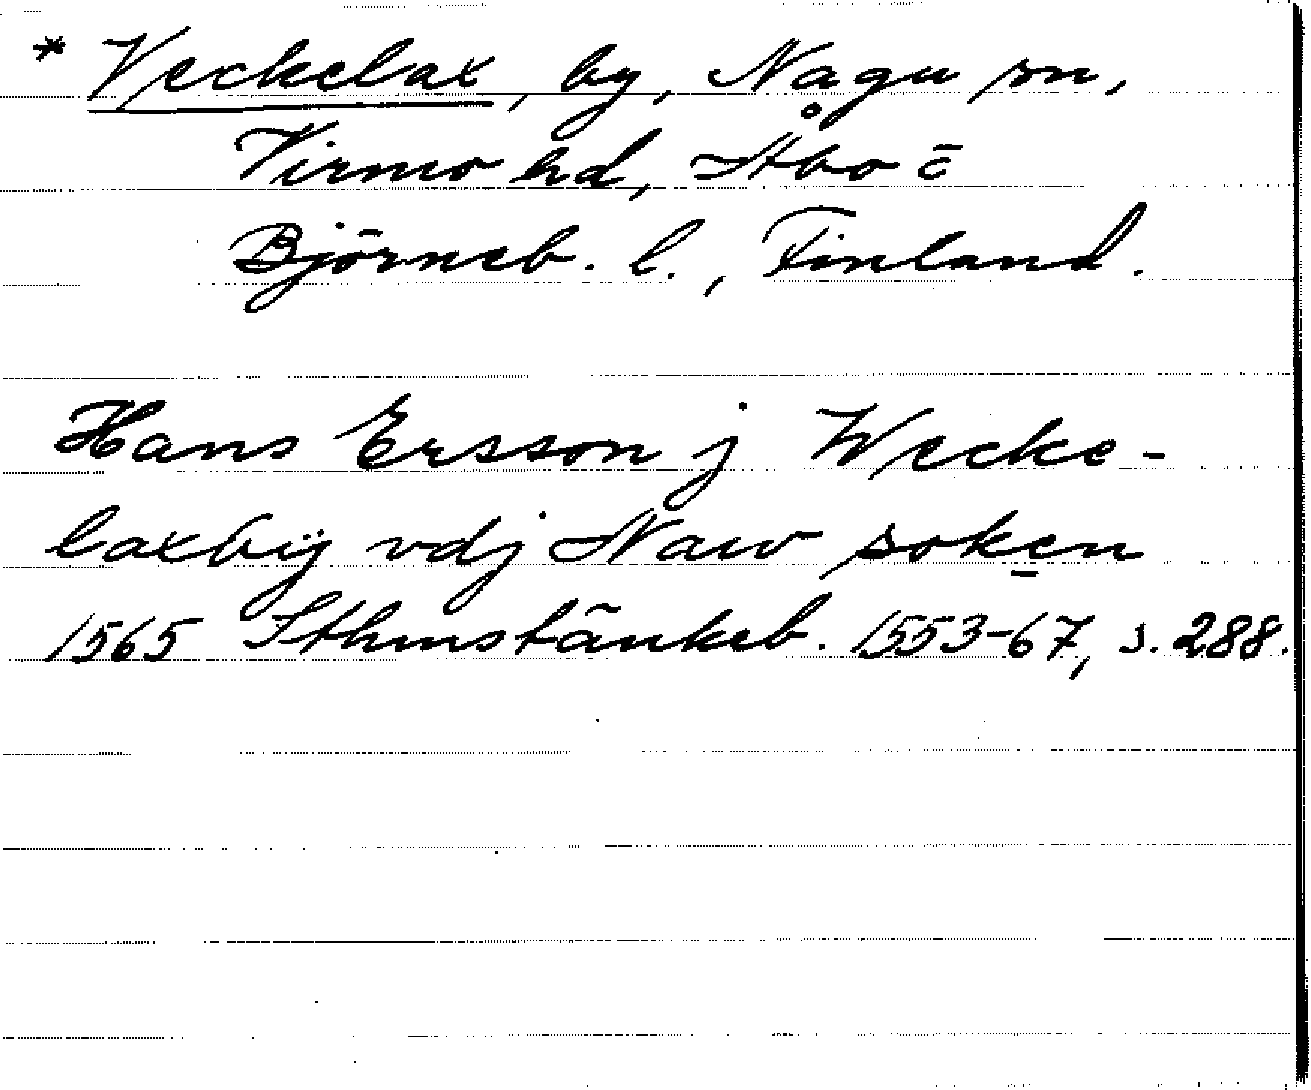 * Veckelax, by, Nagu sn,
Virmo hd, Åbo c̄
Björneb. l., Finland.
Hans Ersson j Wecke-
laxbÿ vdj Naw soken
1565 Sthmstänkeb. 1553-67, s. 288.